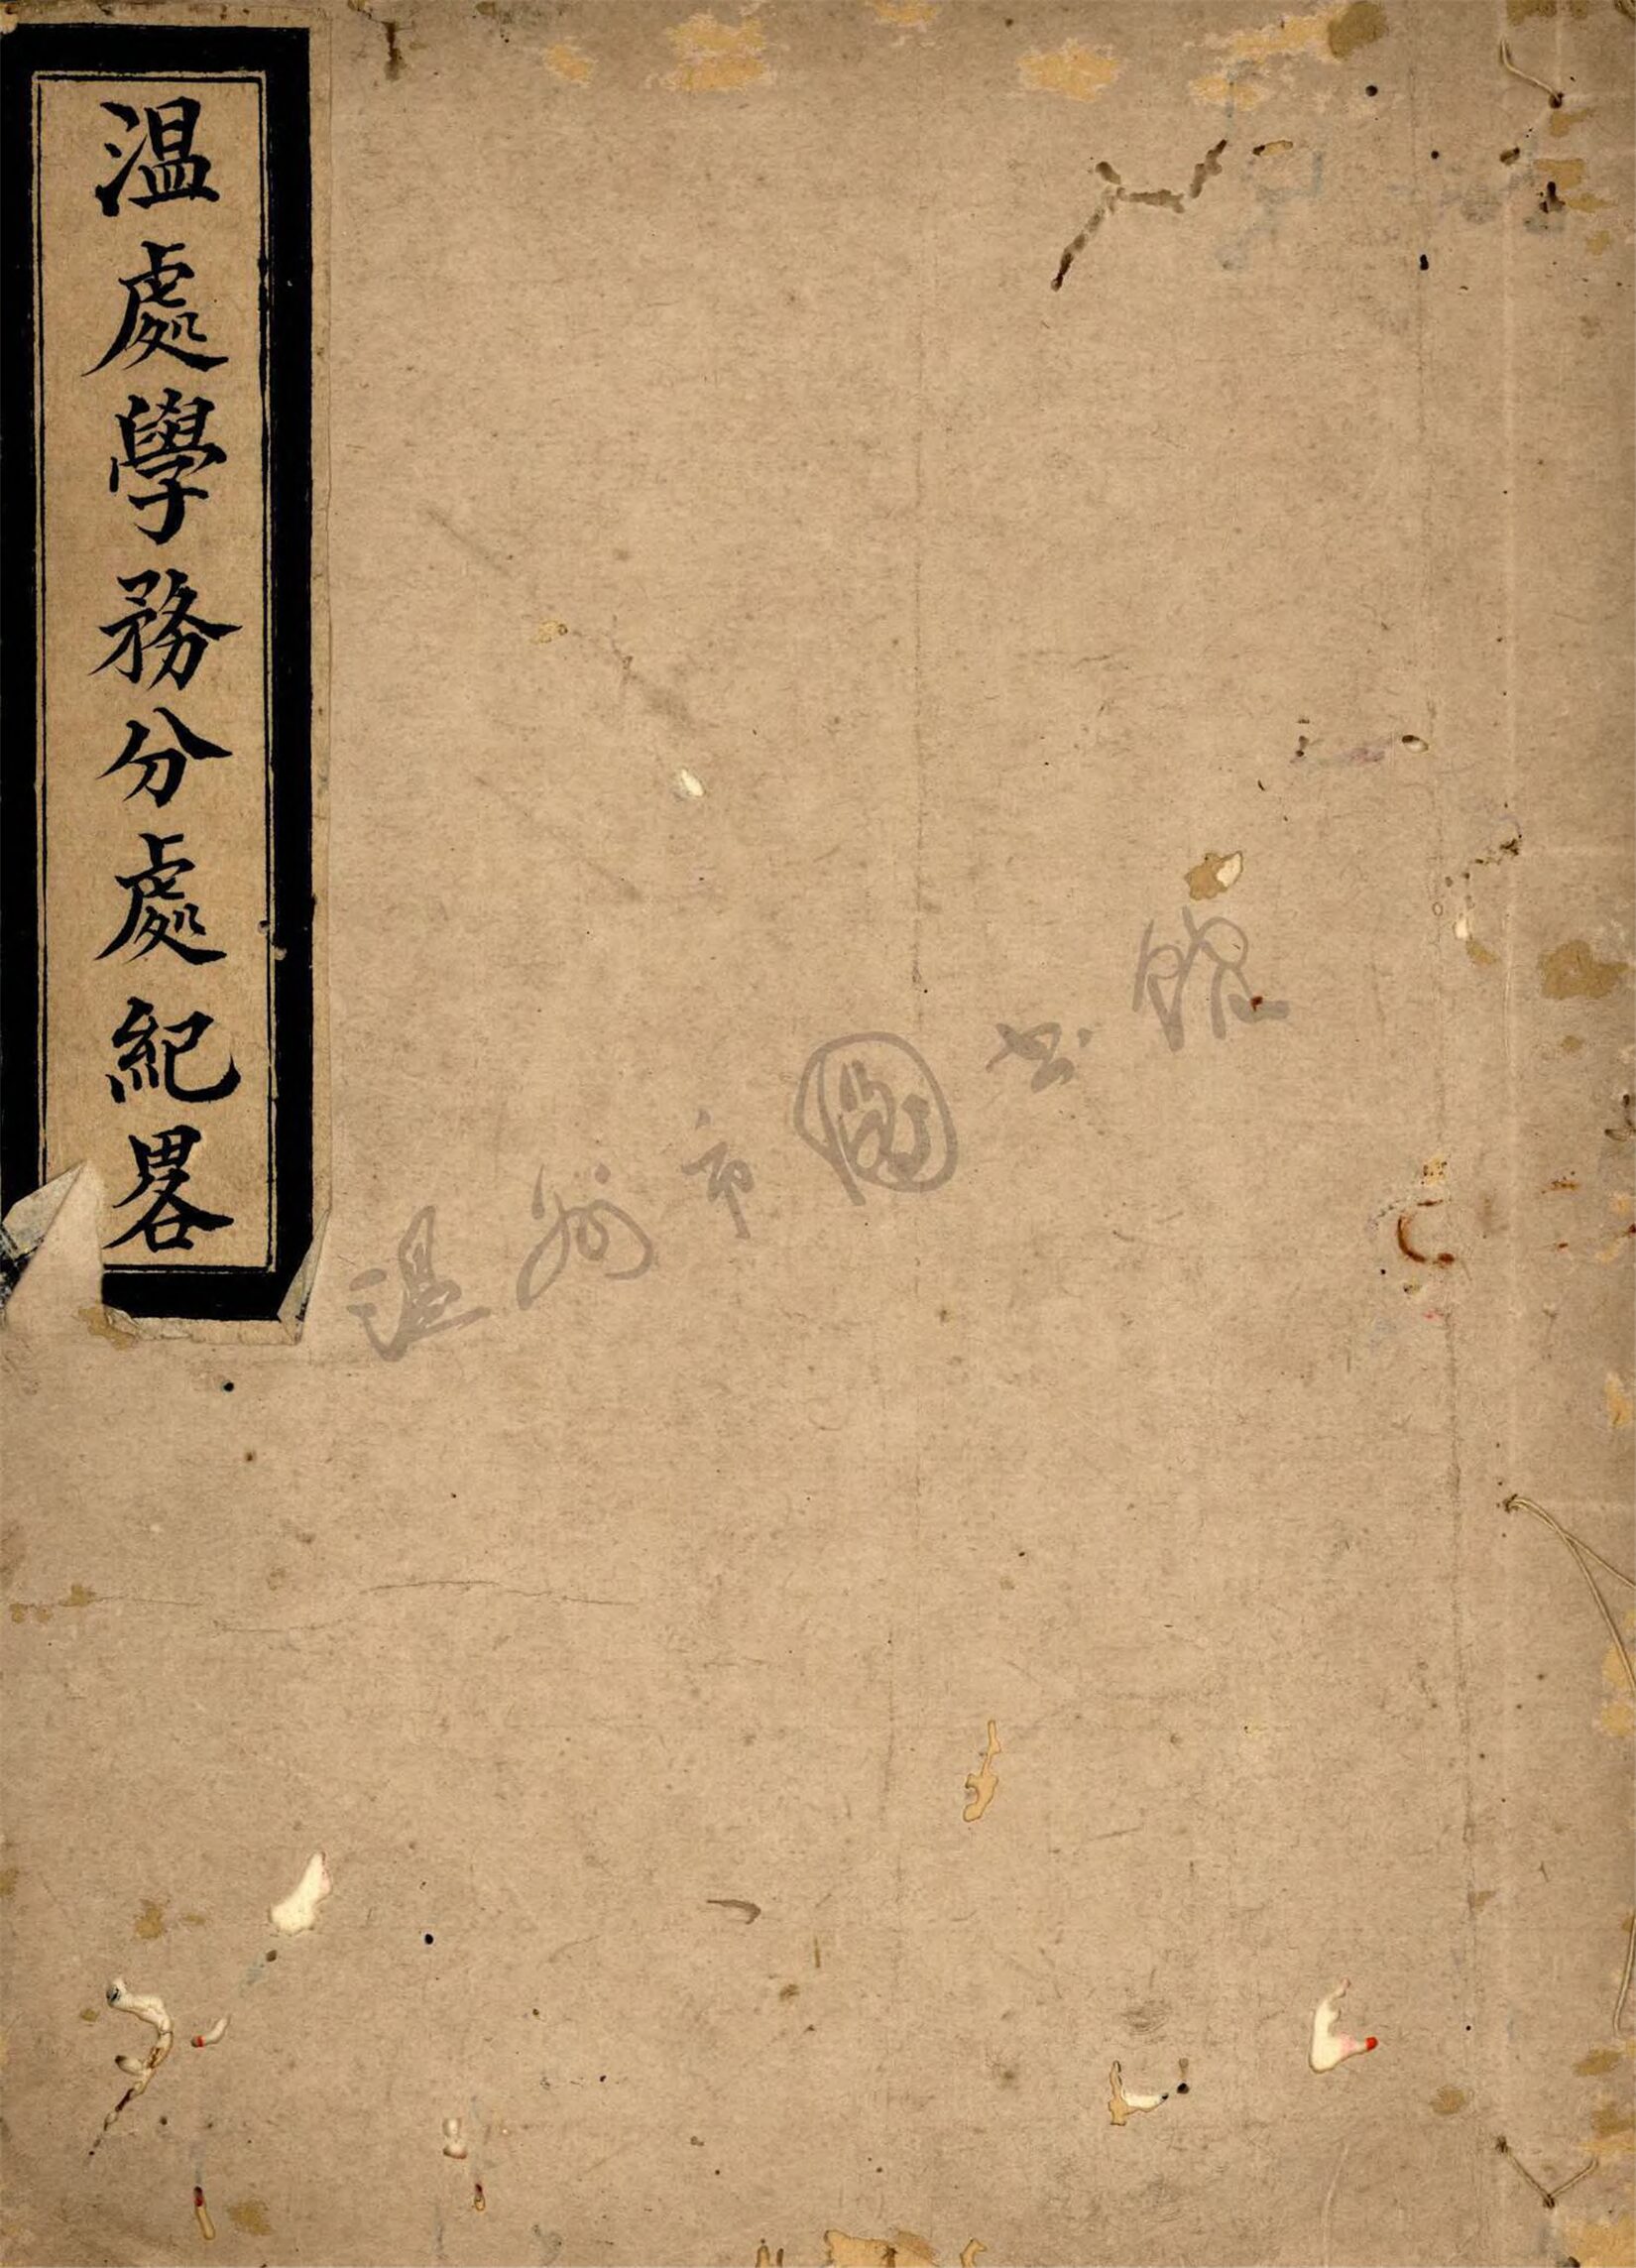 温處學務分處紀畧
温州市圖书馆